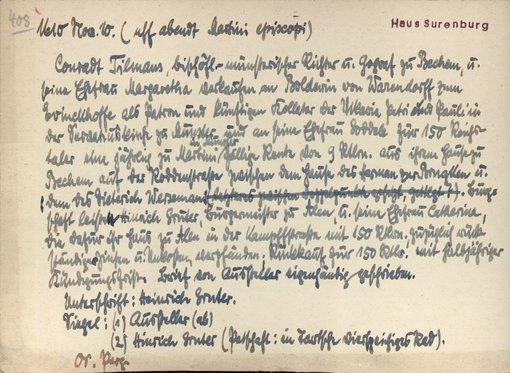 408
Haus Surenburg
1610 Nov. 10. (uff abendt Martini episcopi)
Conradt Tilmans, bischöfl.-münsterischer Richter u. Gograf zu Beckem, u.
seine Ehefrau Margaretha verkaufen an Boldewin von Warendorff zum
als Patron und künftigen Collator der Vikarie Petri und Pauli in
der zu Münster und an seine Ehefrau für 150 Reichs-
taler eine jährlich zu Martini in Münster fällige Rente von 9 Rtlrn. aus ihrem Hause zu
Beckem auf der Noddenstrasse zwischen dem Hause des Herman u.
dem des Dieterich Wessemann. Bürg-
schaft leisten Hinrich Gruter, Bürgermeister zu Alen, u. seine Ehefrau Catharina,
die dafür ihr Haus zu Alen in der Kampstrasse mit 150 Rtlrn. zuzüglich rück-
ständiger Zinsen u. Unkosten verpfänden. Rückkauf für 150 Rtlr. mit halbjähriger
Kündigungsfrist. Brief von Aussteller eigenhändig geschrieben.
Unterschrift: Heinrich Gruter.
Siegel: (1) Aussteller (ab)
(2) Hinrich Gruter (Petschaft: in Tartsche vierspeichiges Rad).
Or. Perg.